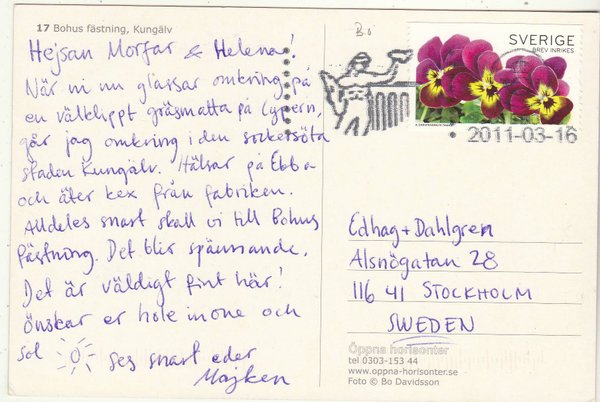 17 Bohus fästning, Kungälv
Hejsan Morfar & Helena!
När ni nu glassar omkring på
en välklippt gräsmatta på Cypern,
går jag omkring i den sockersöta
staden Kungälv. Hälsar på Ebba
och äter kex från fabriken.
Alldeles snart skall vi till Bohus
fästning. Det blir spännande.
Det är väldigt fint här!
Önskar er hole in one och
sol
ses snart eder
Majken
B.o
SVERIGE
BREV INRIKES
2011-03-16
Edhag+Dahlgren
Alsnögatan 28
116 41 STOCKHOLM
SWEDEN
Öppna horisonter
tel 0303-153 44
www.oppna-horisonter.se
Foto © Bo Davidsson